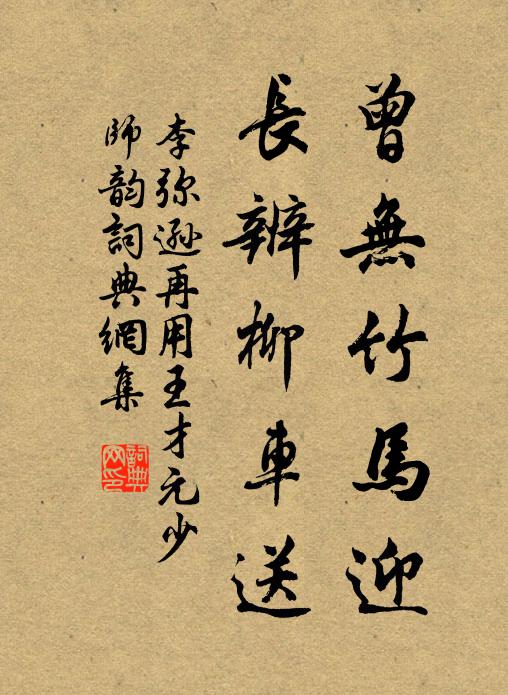 曾無竹馬迎
長辨柳車送
李弥遜再用王才元少
師韵詞典網集
詞典
网印